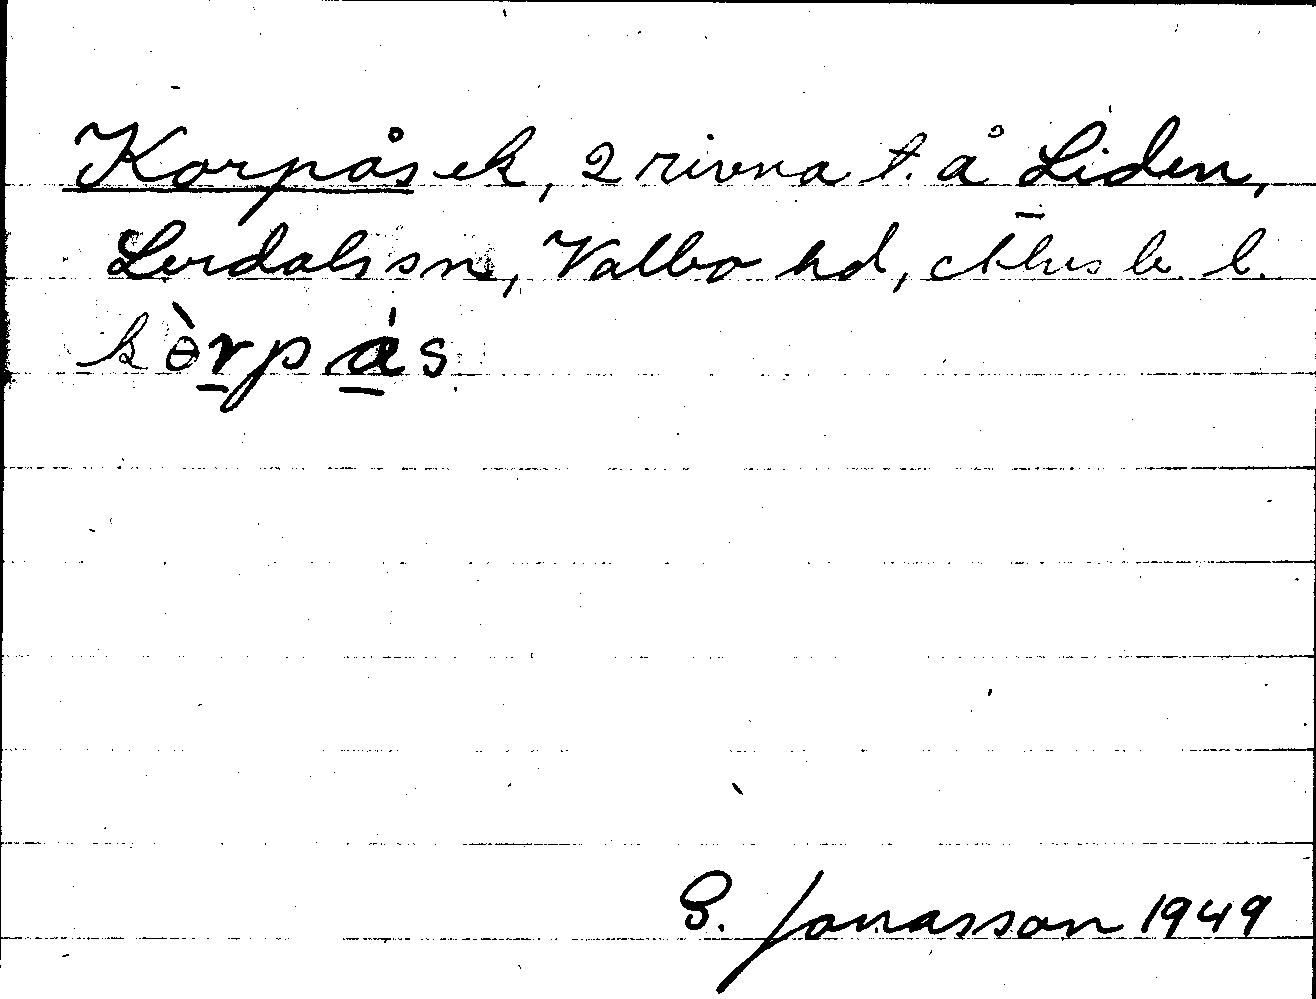 Korpås ek, 2 rivna t. å Liden,
Lerdals sn, Valbo hd, Älvsb. l.
kɵ̀rpás
S. Jonasson 1949